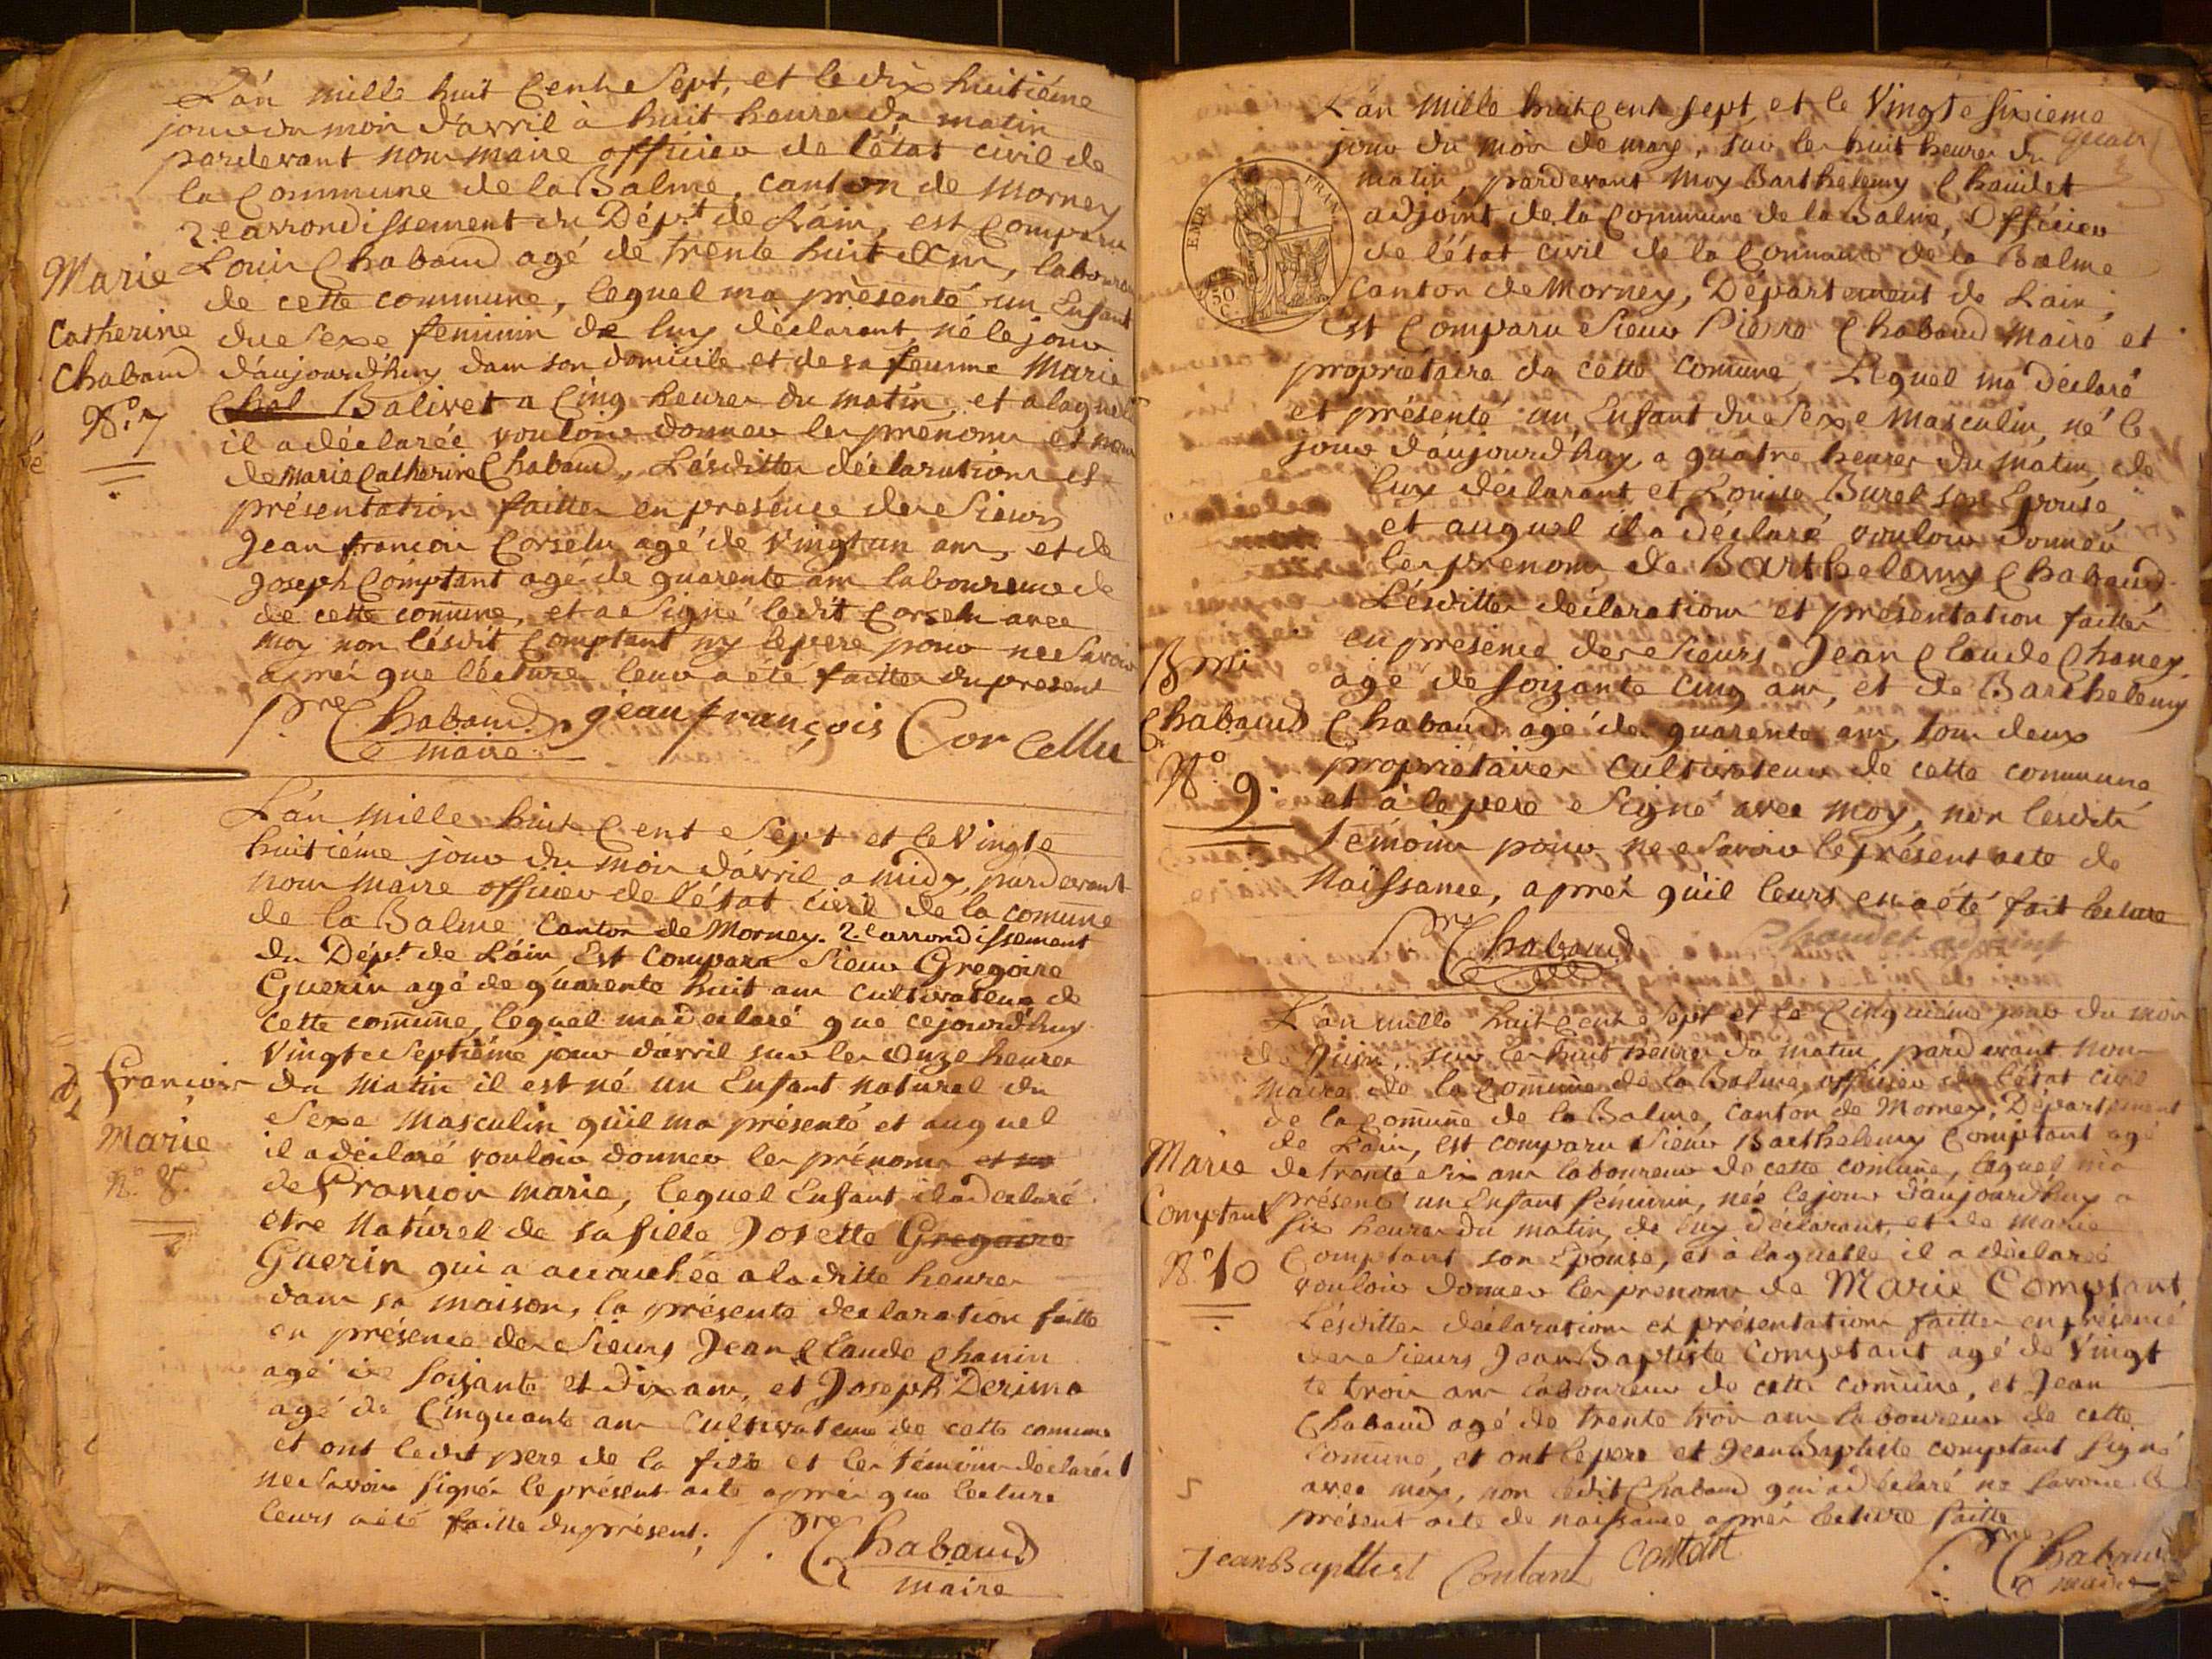 L'an mille huit Cent Sept, et le dix huitiéme
jour du mois d'avril à huit heures du matin
pardevant nous maire officier de l'état civil de
la Commune de la Balme, canton de Morney
2.e arrondissement du Dép.t de L'ain, est Comparu
Louis Chabaud agé de trente huit ans, laboureur
de cette commune, lequel ma présenté un Enfant
du Sexe feminin de luy déclarant, né le jour
d'aujourd'huy dans son domicile et de sa femme Marie
Balivet a Cinq heures du matin, et a laquelle
il a déclarée vouloir donner les prenoms et nom
de Marie Catherine Chabaud, Lésdittes déclarations et
présentation faittes en presence des Sieurs
Jean françois Corselu agé de Vingt un ans, et de
Joseph Comptant agé de quarente ans laboureurs de
de cette com̃une, et a Signé ledit Corselu avec
moy non lésdit Comptant ny le pere pour ne Savoir
aprés que lécture leur a été faitte du present
P.re Chabaud jean françois Corcellu
maire
Marie
Catherine
Chabaud
N.o 7
L'an Mille huit Cent Sept et le Vingte
huitiéme jour du mois d'avril a midy, pardevant
nous Maire officier de l'état civil de la com̃une
de la Balme Canton de Morney. 2.e arrondissement
du Dép.t de L'ain, Est Comparu Sieur Gregoire
Guerin agé de quarente huit ans Cultivateur de
cette com̃une, lequel ma declaré que cejourd'huy
Vingte Septiéme jour d'avril sur les Onze heures
du Matin il est né un Enfant naturel du
Sexe Masculin qu'il ma présenté et auquel
il a déclaré vouloir donner les prénoms et no
de François marie, lequel Enfant il a declaré
etre Naturel de sa fille Josette Gregoire
Guerin qui a accouchée a la ditte heure
dans sa maison, la présente declaration faitte
en présence des Sieurs Jean Claude Chanin
agé de Soizante et dix ans, et Joseph Derima
agé de Cinquante ans Cultivateurs de cette comune
et ont ledit pere de la fille et les témoins declarés
ne Savoir signér le présent acte aprés que lecture
leurs a été faitte du présent;
P.re Chabaud
maire
François
Marie
N.o 8.
L'an Mille huit Cent sept, et le Vingte sixieme
jour du mois de may, sur les huit heures du
matin, pardevant Moy Barthelemy Chaudet
adjoint de la Commune de la Balme, Officier
de l'état civil de la Commune de la Balme
Canton de Morney, Département de L'ain,
Est Comparu Sieur Pierre Chabaud Maire et
proprietaire de cette com̃une, Lequel ma Déclaré
et présenté un Enfant du Sexe Masculin, né le
jour d'aujourd'huy a quatre heures du Matin, de
luy déclarant et Louise Buret son Epouse,
et auquel il a Déclaré vouloir donner
les prenoms de Barthelemy Chabaud
Lésdittes déclarations et présentation faittes
en présence des Sieurs Jean Claude Chaney
agé de soizante cinq ans, et de Barthelemy
Chabaud agé de quarente ans, tous deux
proprietaires Cultivateurs de cette commune
et à le pere Signé avec moy, non lesdits
témoins pour ne Savoir le présent acte de
Naissance, aprés qu'il leurs en a été fait lecture
P.re Chabaud Chaudet adjoint
EMP. FRAN.
50 C.
Bmi
Chabaud
N.o 9.
L'an mille huit Cent Sept et le Cinquiéme jour du mois
de Juin, sur les huit heures du matin, pardevant nous
maire de la Com̃une de la Balme, officier de l'état civil
de la com̃une de la Balme, Canton de Morney, Département
de L'ain, est comparu Sieur Barthelemy Comptant agé
de trente Six ans laboureur de cette comune, lequel m'a
présenté un Enfant feminin, née le jour d'aujourd'huy a
six heures du matin, de luy déclarant, et de Marie
Comptant son Epouse, et à laquelle il a déclaréé
vouloir donner les prenoms de Marie Comptant
Lésdittes déclarations et présentations faittes en présence
des Sieurs Jean Baptiste Comptant agé de Vingt
te trois ans laboureur de cette com̃une, et Jean
Chabaud agé de trente trois ans laboureur de cette
Com̃une, et ont le pere et Jean Baptiste comptant signé
avec moy, non ledit Chabaud qui a déclaré ne savoir le
présent acte de naissance aprés lecture faitte
Jean Baptist Contant contant P.re Chabaud
maire
Marie
Comptant
N.o 10